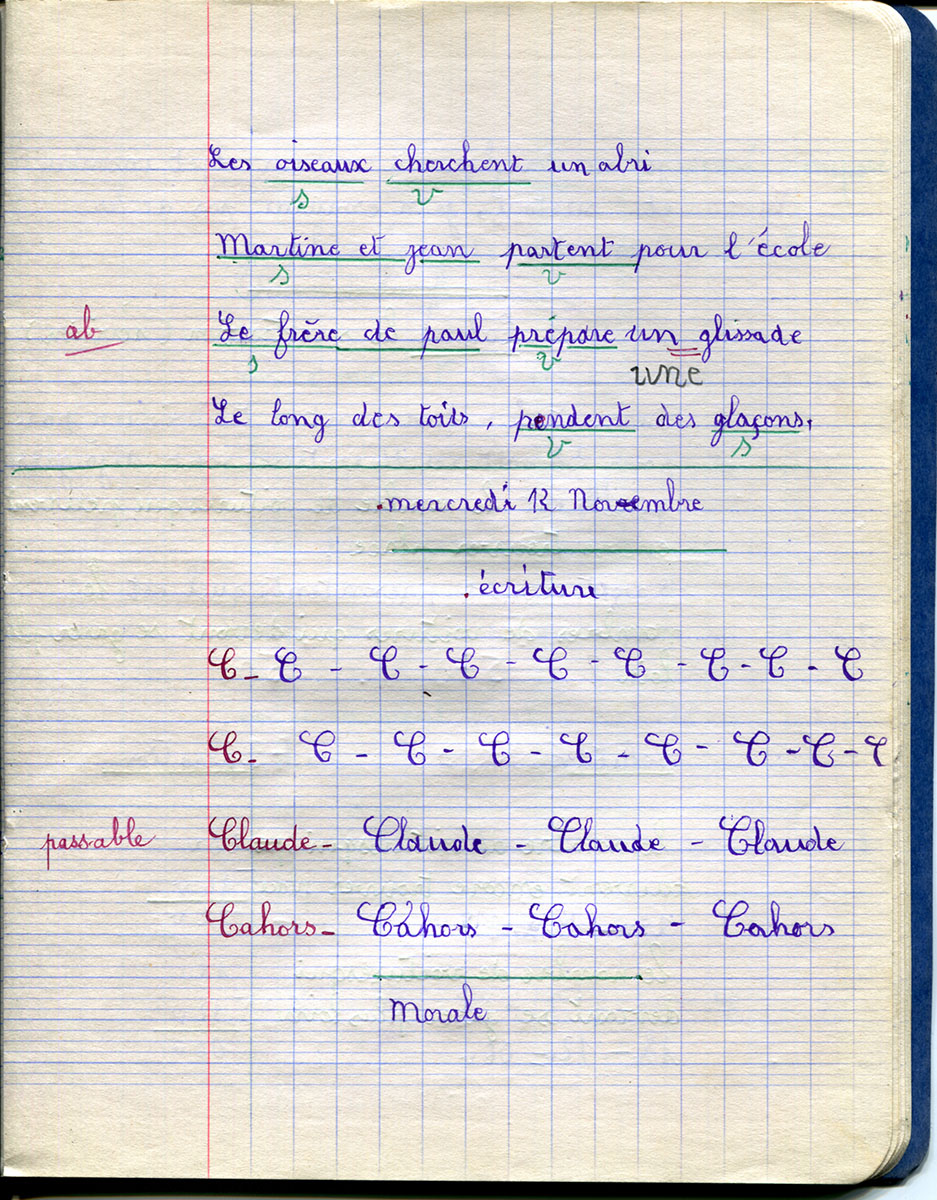 Les oiseaux cherchent un abri
s v
Martine et jean partent pour l'école
s v
ab Le frère de paul prépare un glissade
s v une
Le long des toits, pendent des glaçons.
v s
mercredi 12 Novembre
écriture
C - C - C - C - C - C - C - C - C
C - C - C - C - C - C - C - C - C
passable Claude - Claude - Claude - Claude
Cahors - Cahors - Cahors - Cahors
Morale